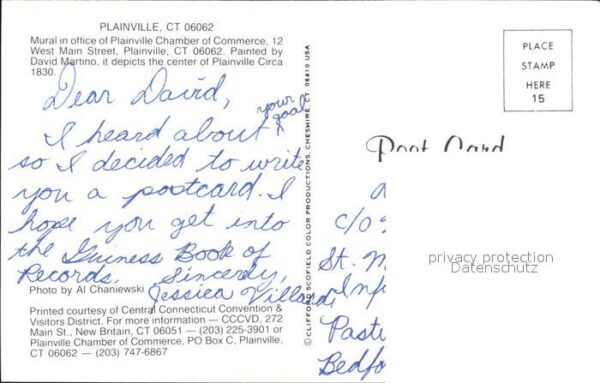 PLAINVILLE, CT 06062
Mural in office of Plainville Chamber of Commerce, 12
West Main Street, Plainville, CT 06062. Painted by
David Martino, it depicts the center of Plainville Circa
1830.
Dear David,
your
goal
I heard about
so I decided to write
you a postcard. I
hope you get into
the Guiness Book of
Records. Sincerly,
Photo by Al Chaniewski
Jessica Villard
Printed courtesy of Central Connecticut Convention &
Visitors District. For more information — CCCVD, 272
Main St., New Britain, CT 06051 — (203) 225-3901 or
Plainville Chamber of Commerce, PO Box C, Plainville,
CT 06062 — (203) 747-6867
© CLIFFORD SCOFIELD COLOR PRODUCTIONS, CHESHIRE, CT. 06410 USA
PLACE
STAMP
HERE
15
Post Card
c/o
St. M
Inf
Past
Bedfo
privacy protection
Datenschutz